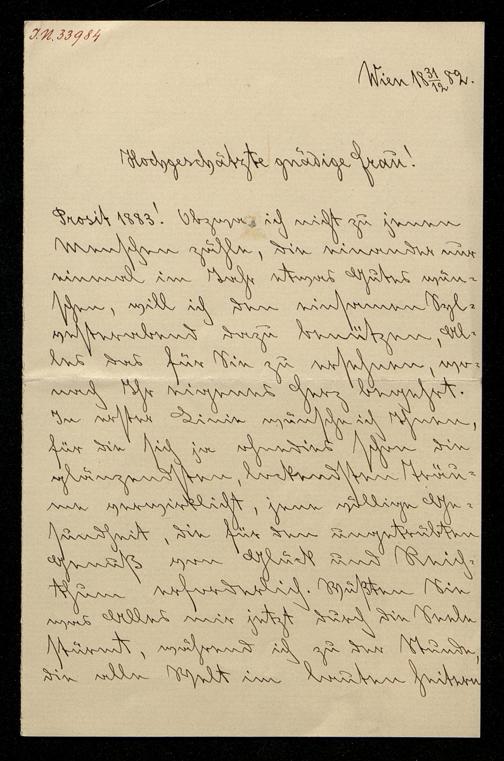 I.N. 33984
Wien 18 31/12 82.
Hochgeschätzte gnädige Frau!
Prosit 1883! Obzwar ich nicht zu jenen
Menschen zähle, die einander nur
einmal im Jahr etwas Gutes wün-
schen, will ich den einsamen Syl-
vesterabend dazu benützen, Al-
les das für Sie zu erflehen, wo-
nach Ihr eigenes Herz begehrt.
In erster Linie wünsche ich Ihnen,
für die sich ja ohnedies schon die
glänzendsten, lockendsten Träu-
me verwirklicht, jene völlige Ge-
sundheit, die für den ungetrübten
Genuß von Glück und Reich-
thum erforderlich. Wüßten Sie
was Alles mir jetzt durch die Seele
stürmt, während ich zu der Stunde,
die alle Welt im lauten heitern